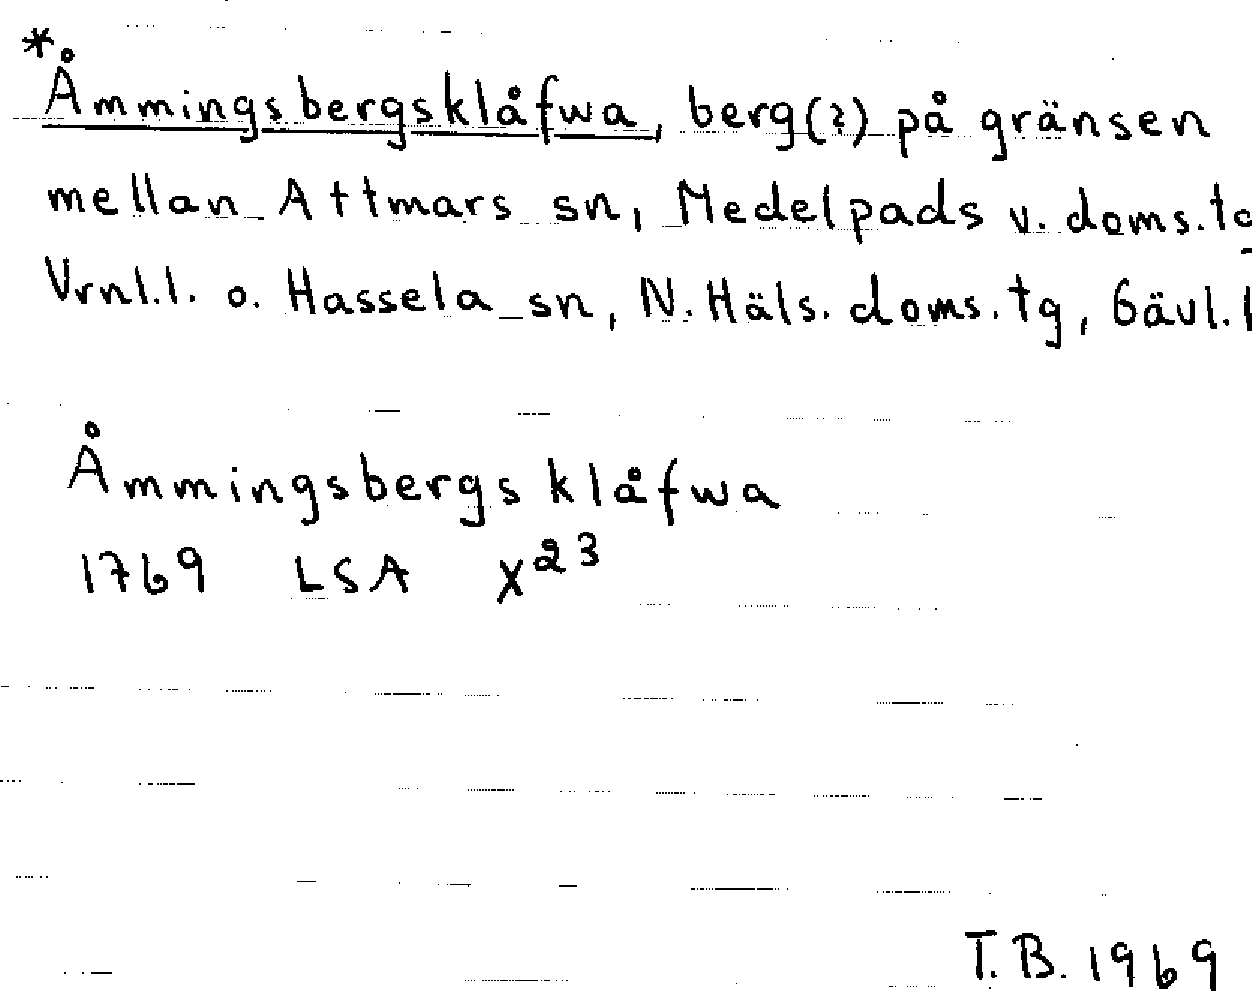 *Åmmingsbergsklåfwa, berg(?) på gränsen
mellan Attmars sn, Medelpads v. doms.tg
Vrnl.l. o. Hassela sn, N. Häls. doms.tg, Gävl.l
Åmmingsbergs klåfwa
1769 LSA X²³
T.B. 1969